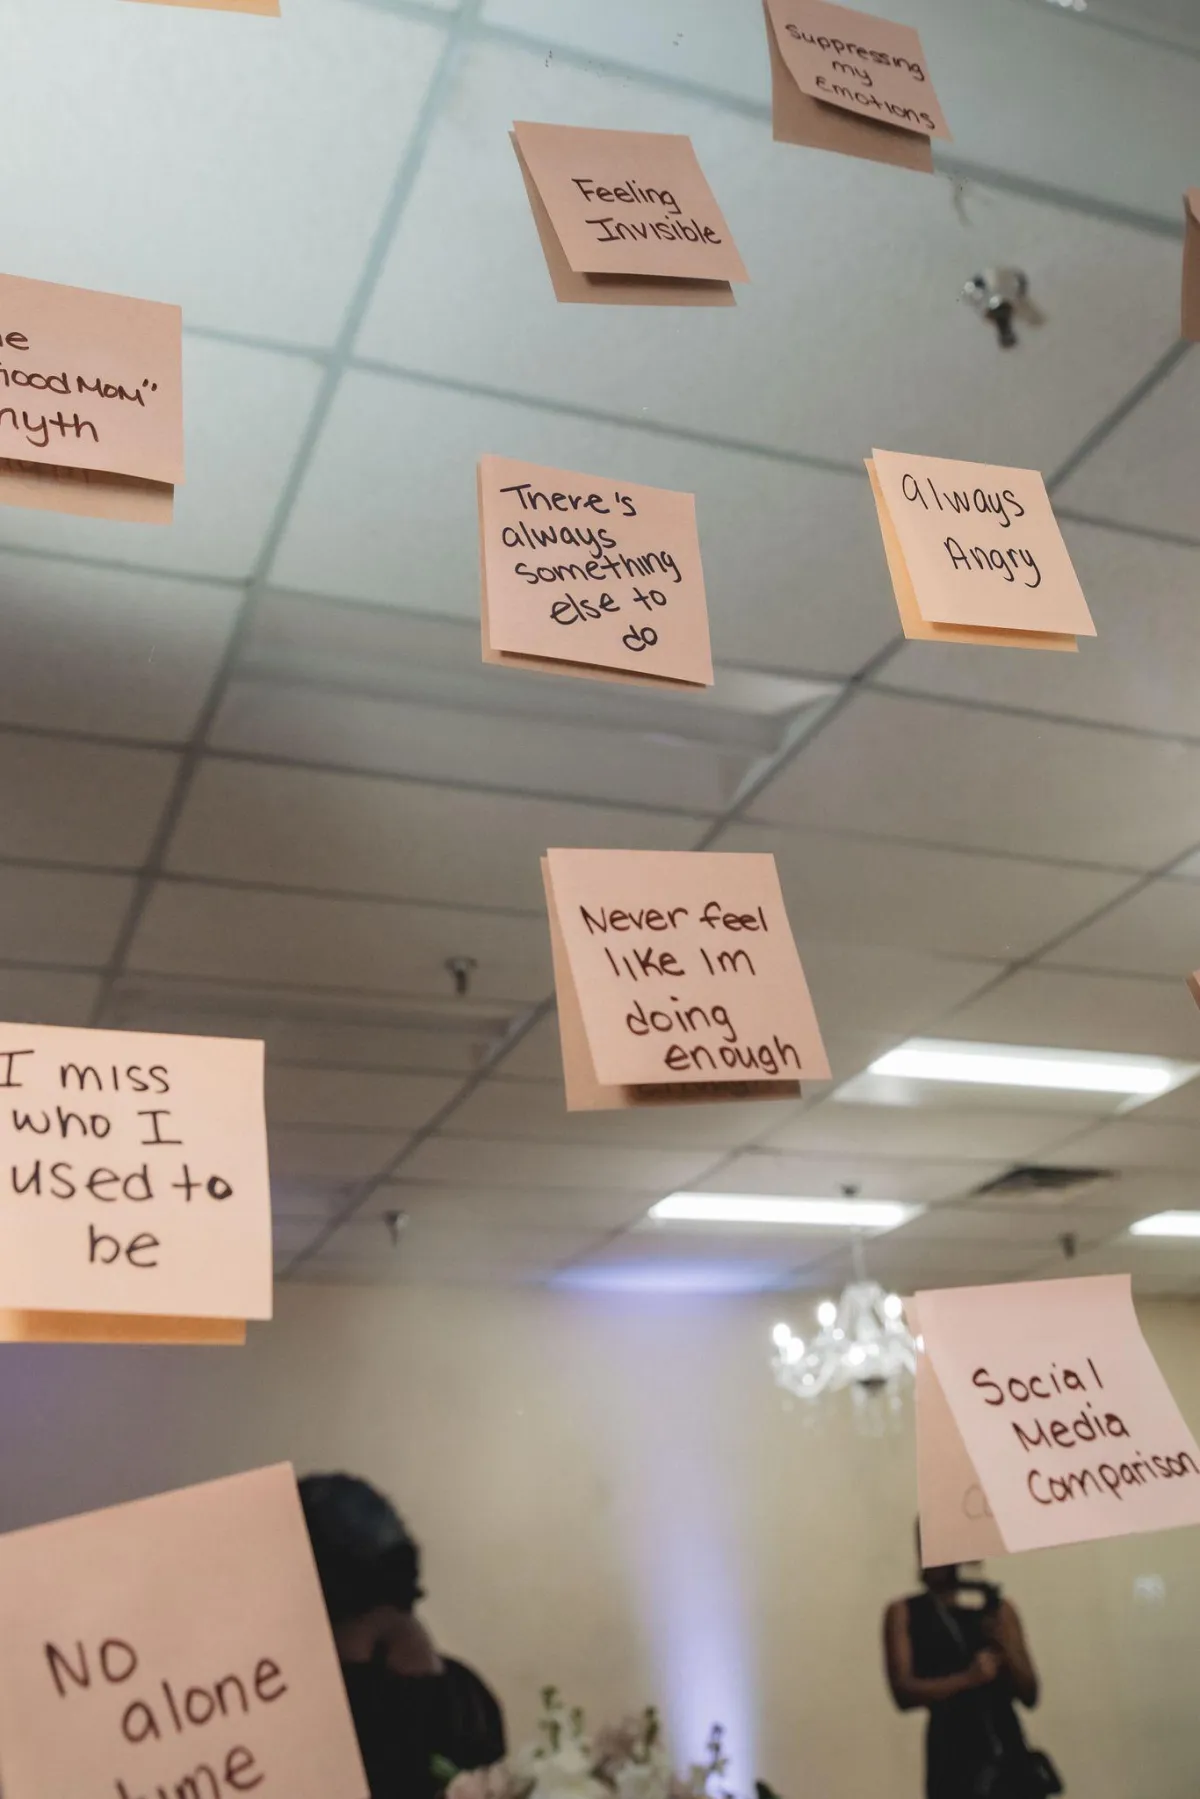 Suppressing
my
Emotions
Feeling
Invisible
Good Mom"
myth
There's
always
something
else to
do
Always
Angry
Never feel
like Im
doing
enough
I miss
who I
used to
be
Social
Media
Comparison
NO
alone
time